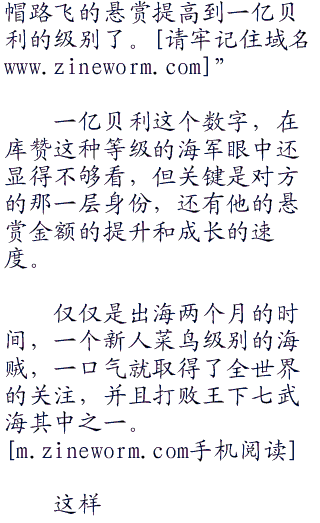 帽路飞的悬赏提高到一亿贝
利的级别了。[请牢记住域名
www.zineworm.com]”
一亿贝利这个数字，在
库赞这种等级的海军眼中还
显得不够看，但关键是对方
的那一层身份，还有他的悬
赏金额的提升和成长的速
度。
仅仅是出海两个月的时
间，一个新人菜鸟级别的海
贼，一口气就取得了全世界
的关注，并且打败王下七武
海其中之一。
[m.zineworm.com手机阅读]
这样